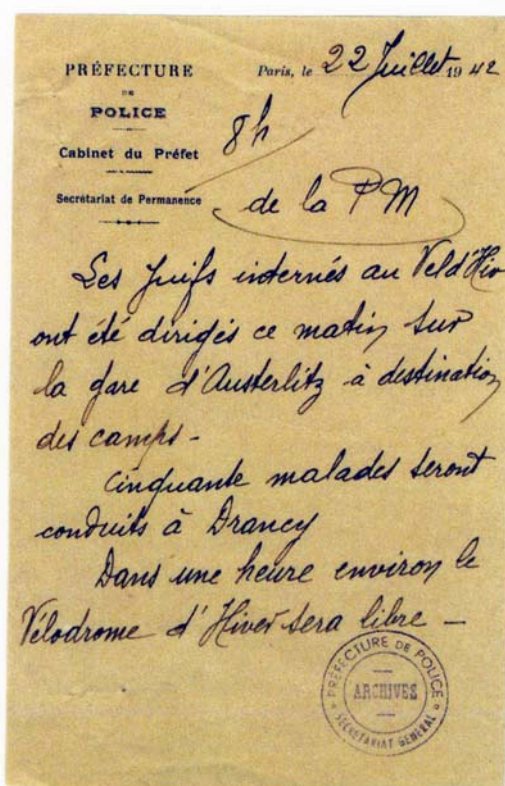 PRÉFECTURE
DE
POLICE
Cabinet du Préfet
Secrétariat de Permanence
Paris, le 22 Juillet 1942
8h
de la PM
Les Juifs internés au Veld'Hiv
ont été dirigés ce matin sur
la gare d'Austerlitz à destination
des camps -
Cinquante malades seront
conduits à Drancy
Dans une heure environ le
Vélodrome d'Hiver sera libre -
PRÉFECTURE DE POLICE
ARCHIVES
SECRÉTARIAT GÉNÉRAL